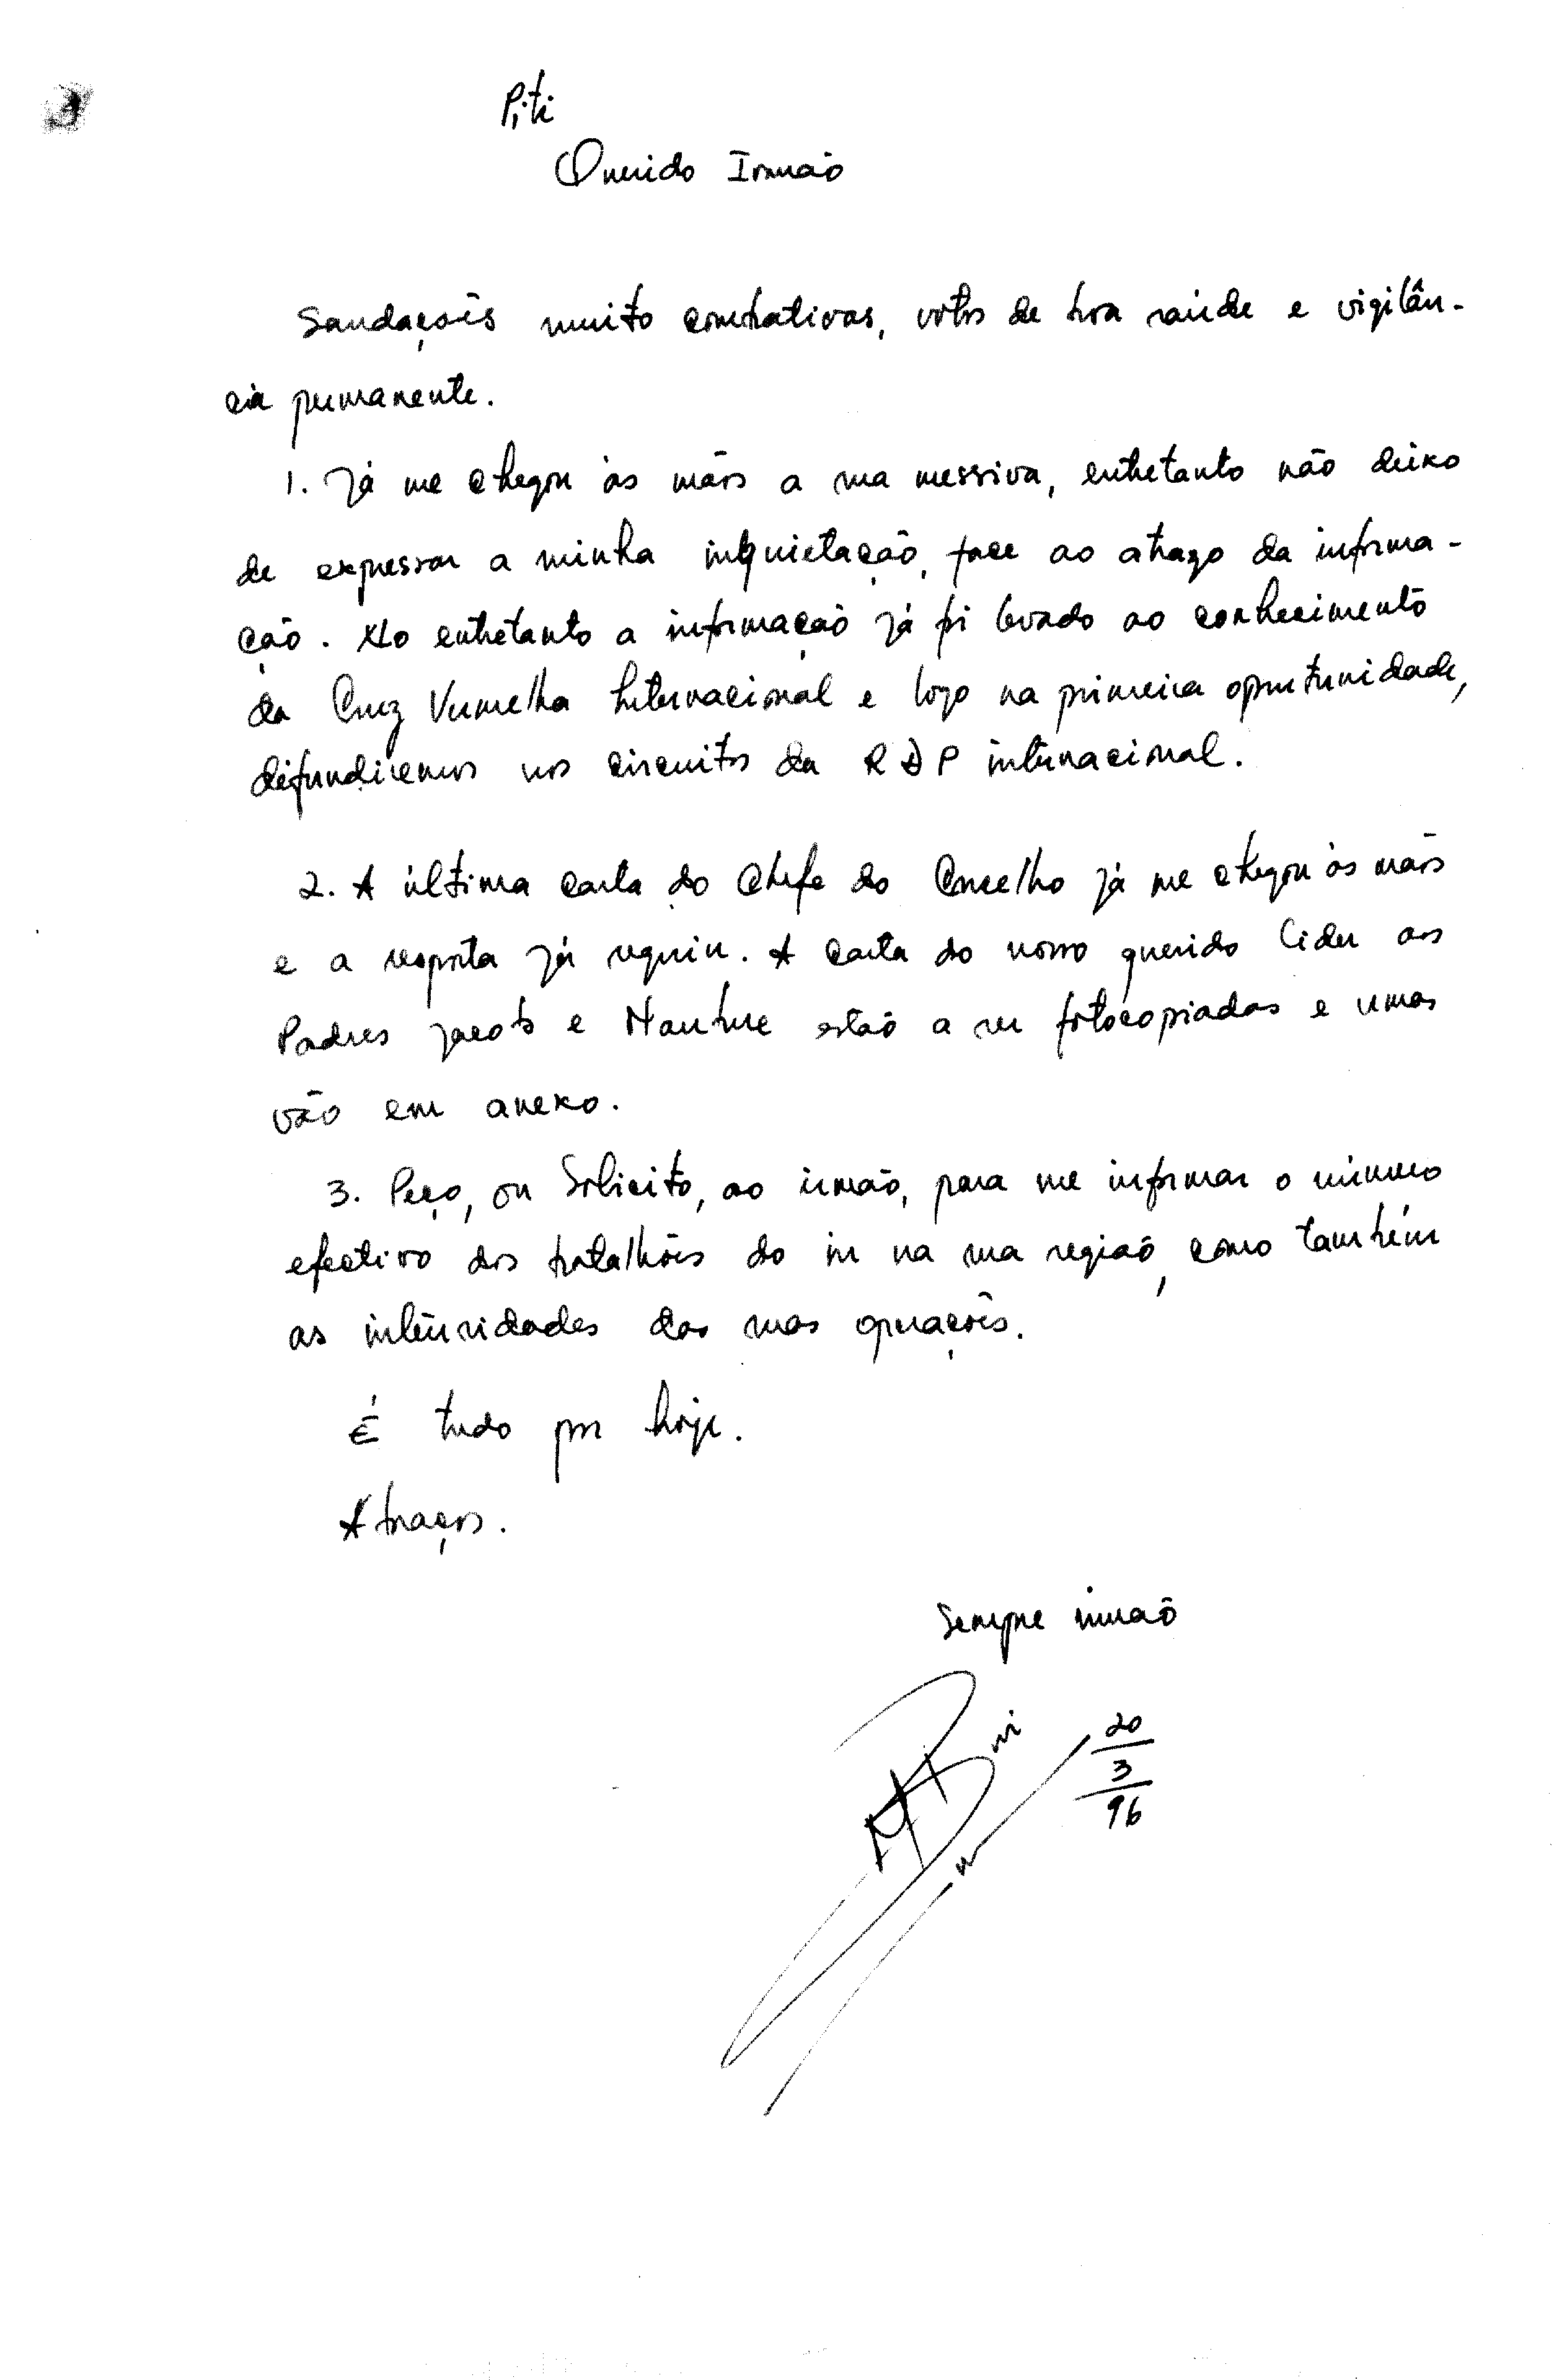 Piti
Querido Irmão
Saudações muito combativas, votos de boa saúde e vigilân-
cia permanente.
1. Já me chegou às mãos a sua messiva, entretanto não deixo
de expressar a minha inquietação, face ao atrazo da informa-
ção. No entretanto a informação já foi levado ao conhecimento
da Cruz Vermelha Internacional e logo na primeira oportunidade,
difundiremos nos circuitos da RDP internacional.
2. A última carta do Chefe do Concelho já me chegou às mãos
e a resposta já seguiu. A carta do nosso querido lider aos
Padres Jacob e estão a ser fotocopiadas e umas
vão em anexo.
3. Peço, ou Solicito, ao irmão, para me informar o número
efectivo dos batalhões do in na sua região, como também
as intensidades das suas operações.
É tudo por hoje.
Abraços.
Sempre irmão
20
3
96